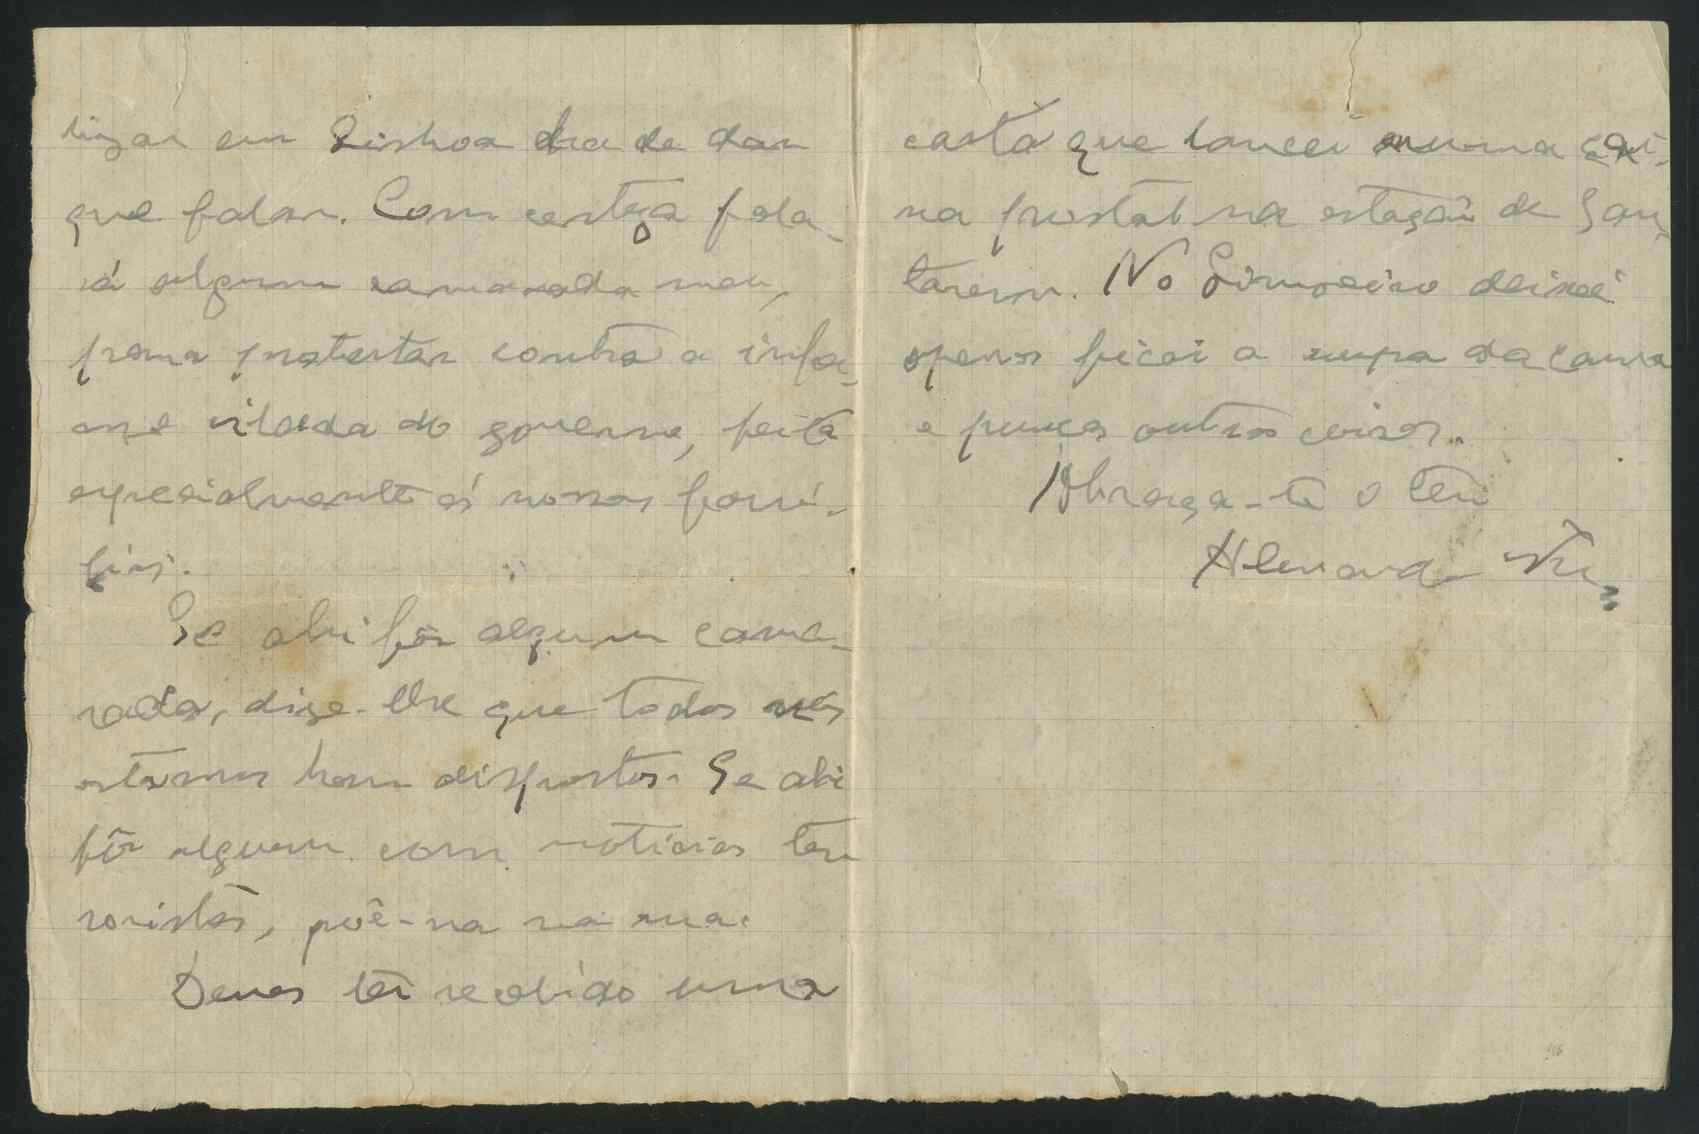 lugar em Lisboa ha de dar
que falar. Com certeza fala-
rá algum camarada meu,
para protestar contra a infa-
me cilada do governo, feita
especialmente ás nossas famí-
lias.
Se ahi fôr algum cama-
rada, dize-lhe que todos nós
estamos bem dispostos. Se ahi
fôr alguem com noticias ter
roristas, põe-na na rua.
Deves ter recebido uma
carta que lancei numa cai-
xa postal na estação de San-
tarem. No Limoeiro deixei
apenas a roupa da cama
e poucas outras coisas.
Abraça-te o teu